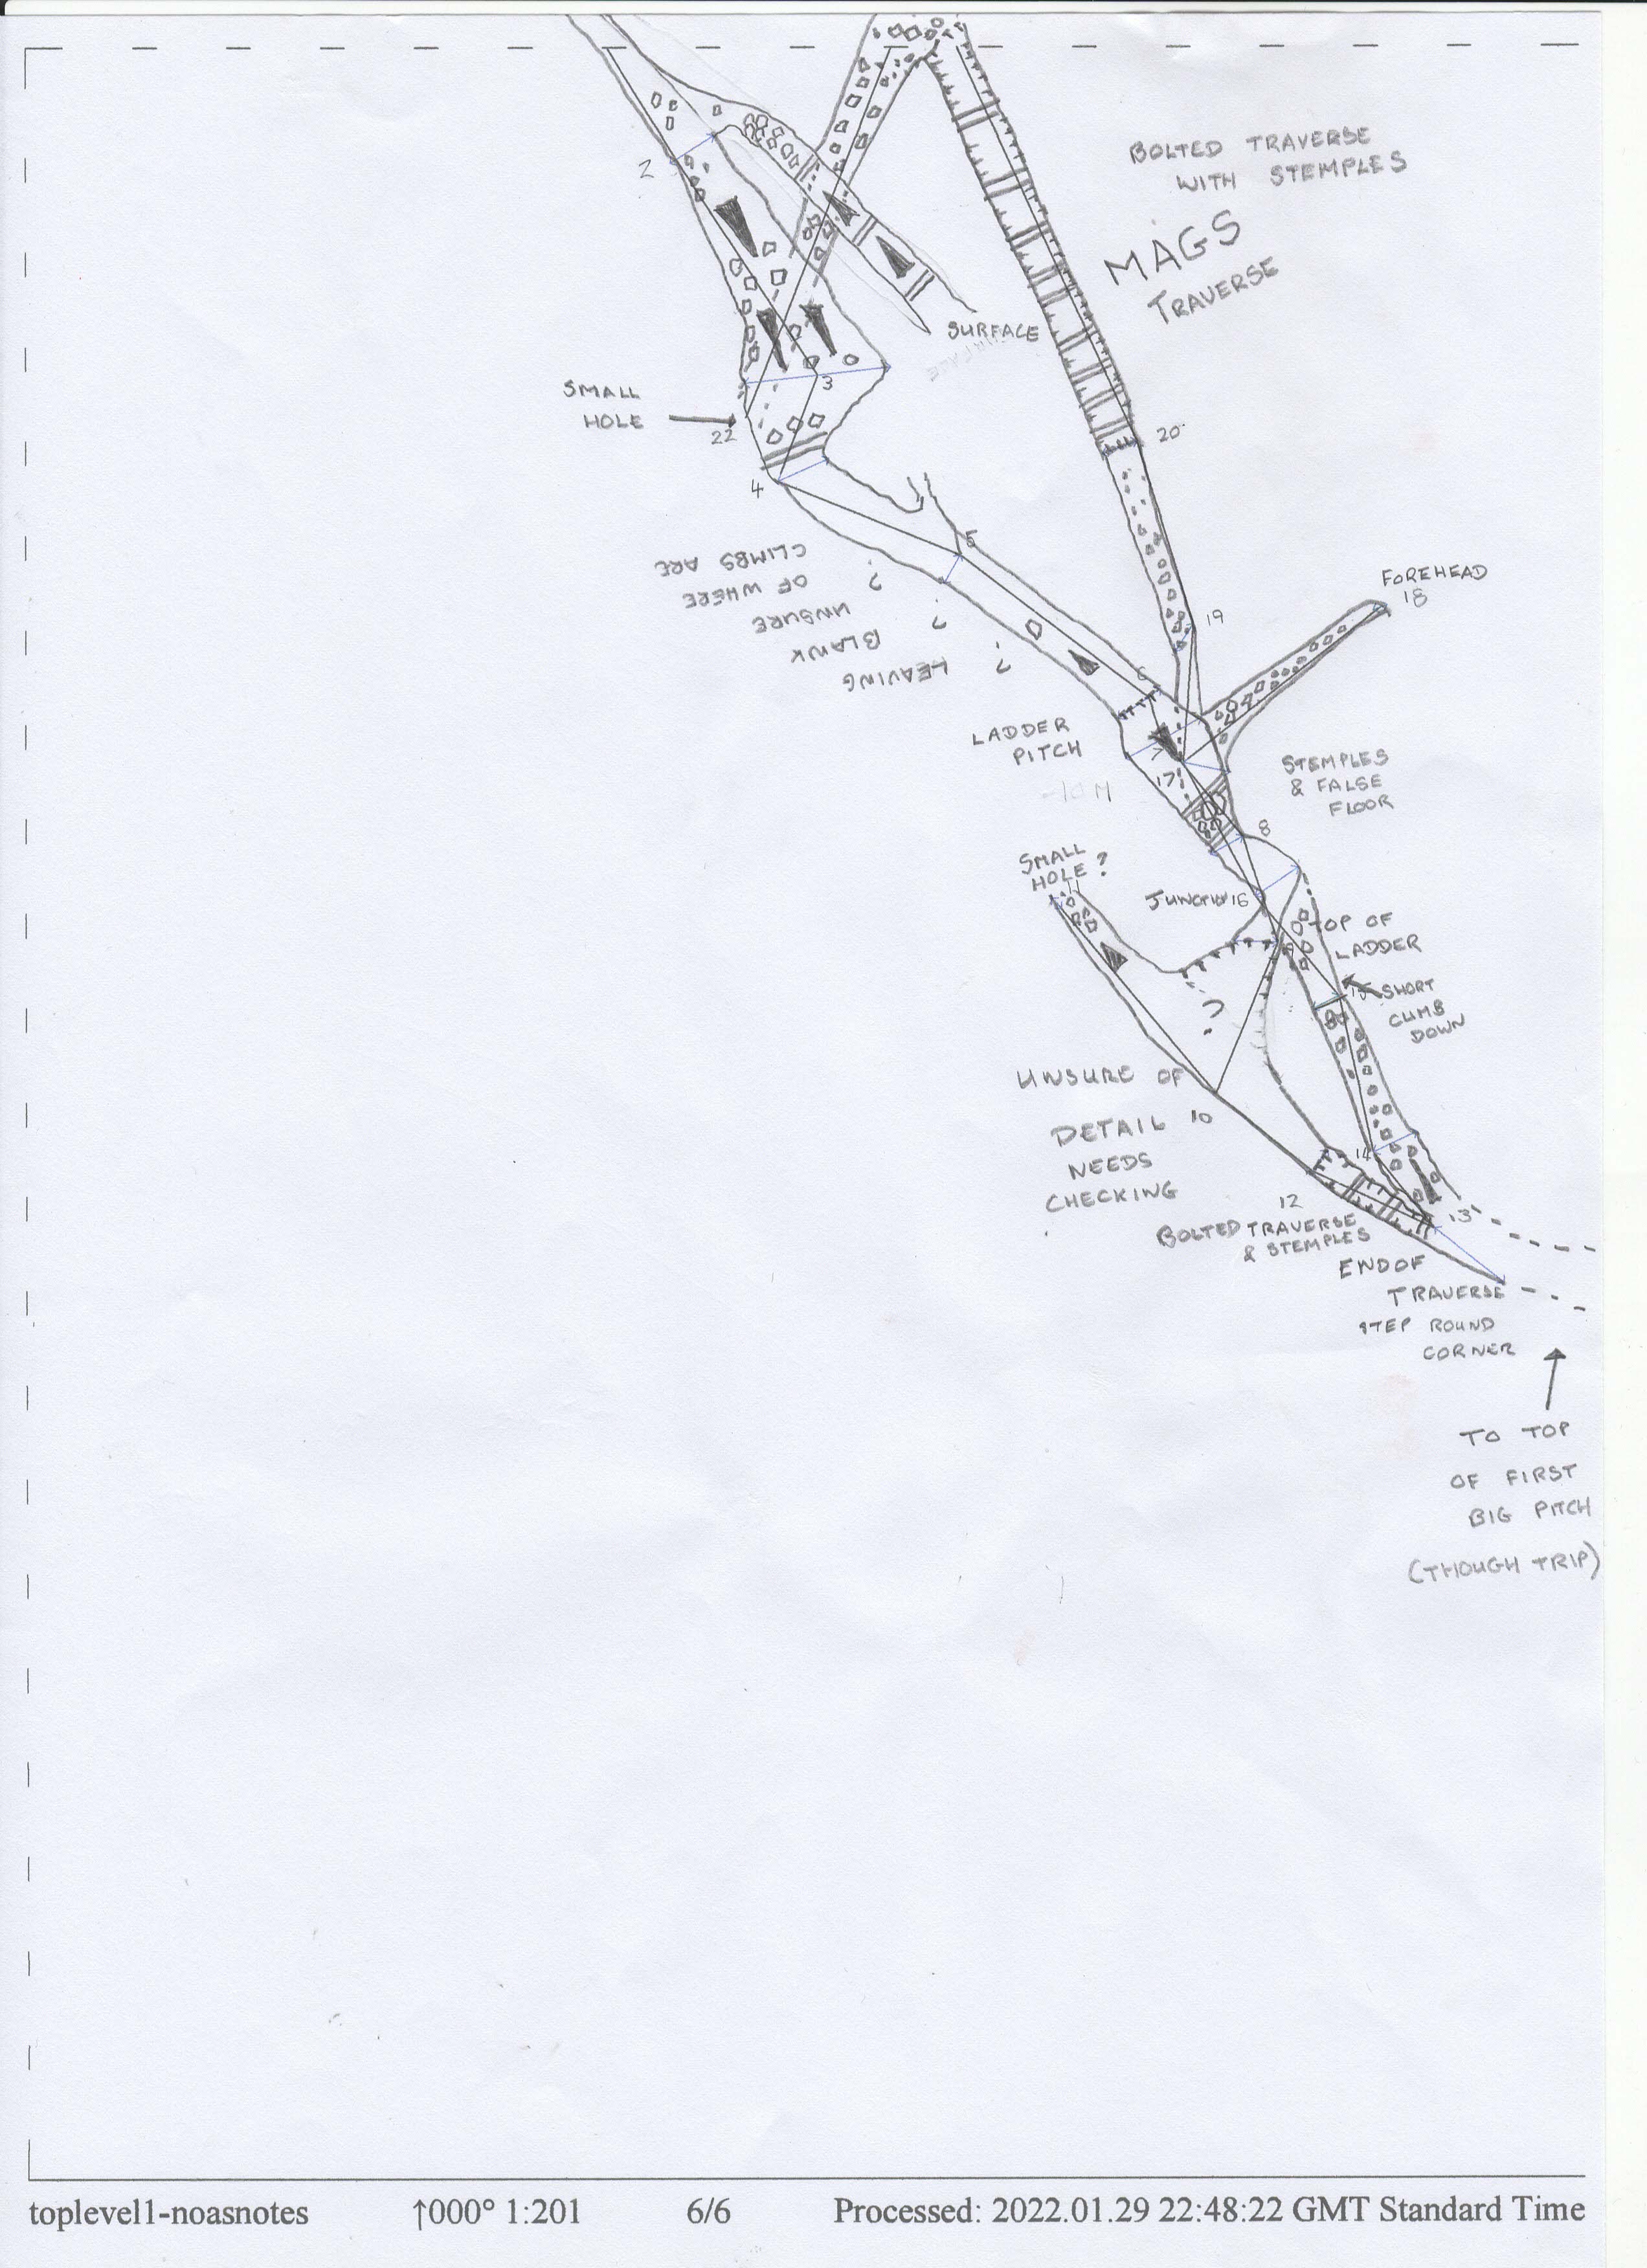 BOLTED TRAVERSE
WITH STEMPLES
MAGS
TRAVERSE
2
SURFACE
SMALL
HOLE
3
22
20
4
5
CLIMBS ARE
OF WHERE
UNSURE
BLANK
LEAVING
?
?
?
FOREHEAD
18
19
6
LADDER
PITCH
7
17
-10M
STEMPLES
& FALSE
FLOOR
8
SMALL
HOLE ?
11
JUNCTION 16
TOP OF
LADDER
9
15
SHORT
CLIMB
DOWN
?
UNSURE OF
DETAIL
NEEDS
CHECKING
10
14
12
13
BOLTED TRAVERSE
& STEMPLES
END OF
TRAVERSE
STEP ROUND
CORNER
TO TOP
OF FIRST
BIG PITCH
(THOUGH TRIP)
toplevel1-noasnotes ↑000° 1:201 6/6 Processed: 2022.01.29 22:48:22 GMT Standard Time